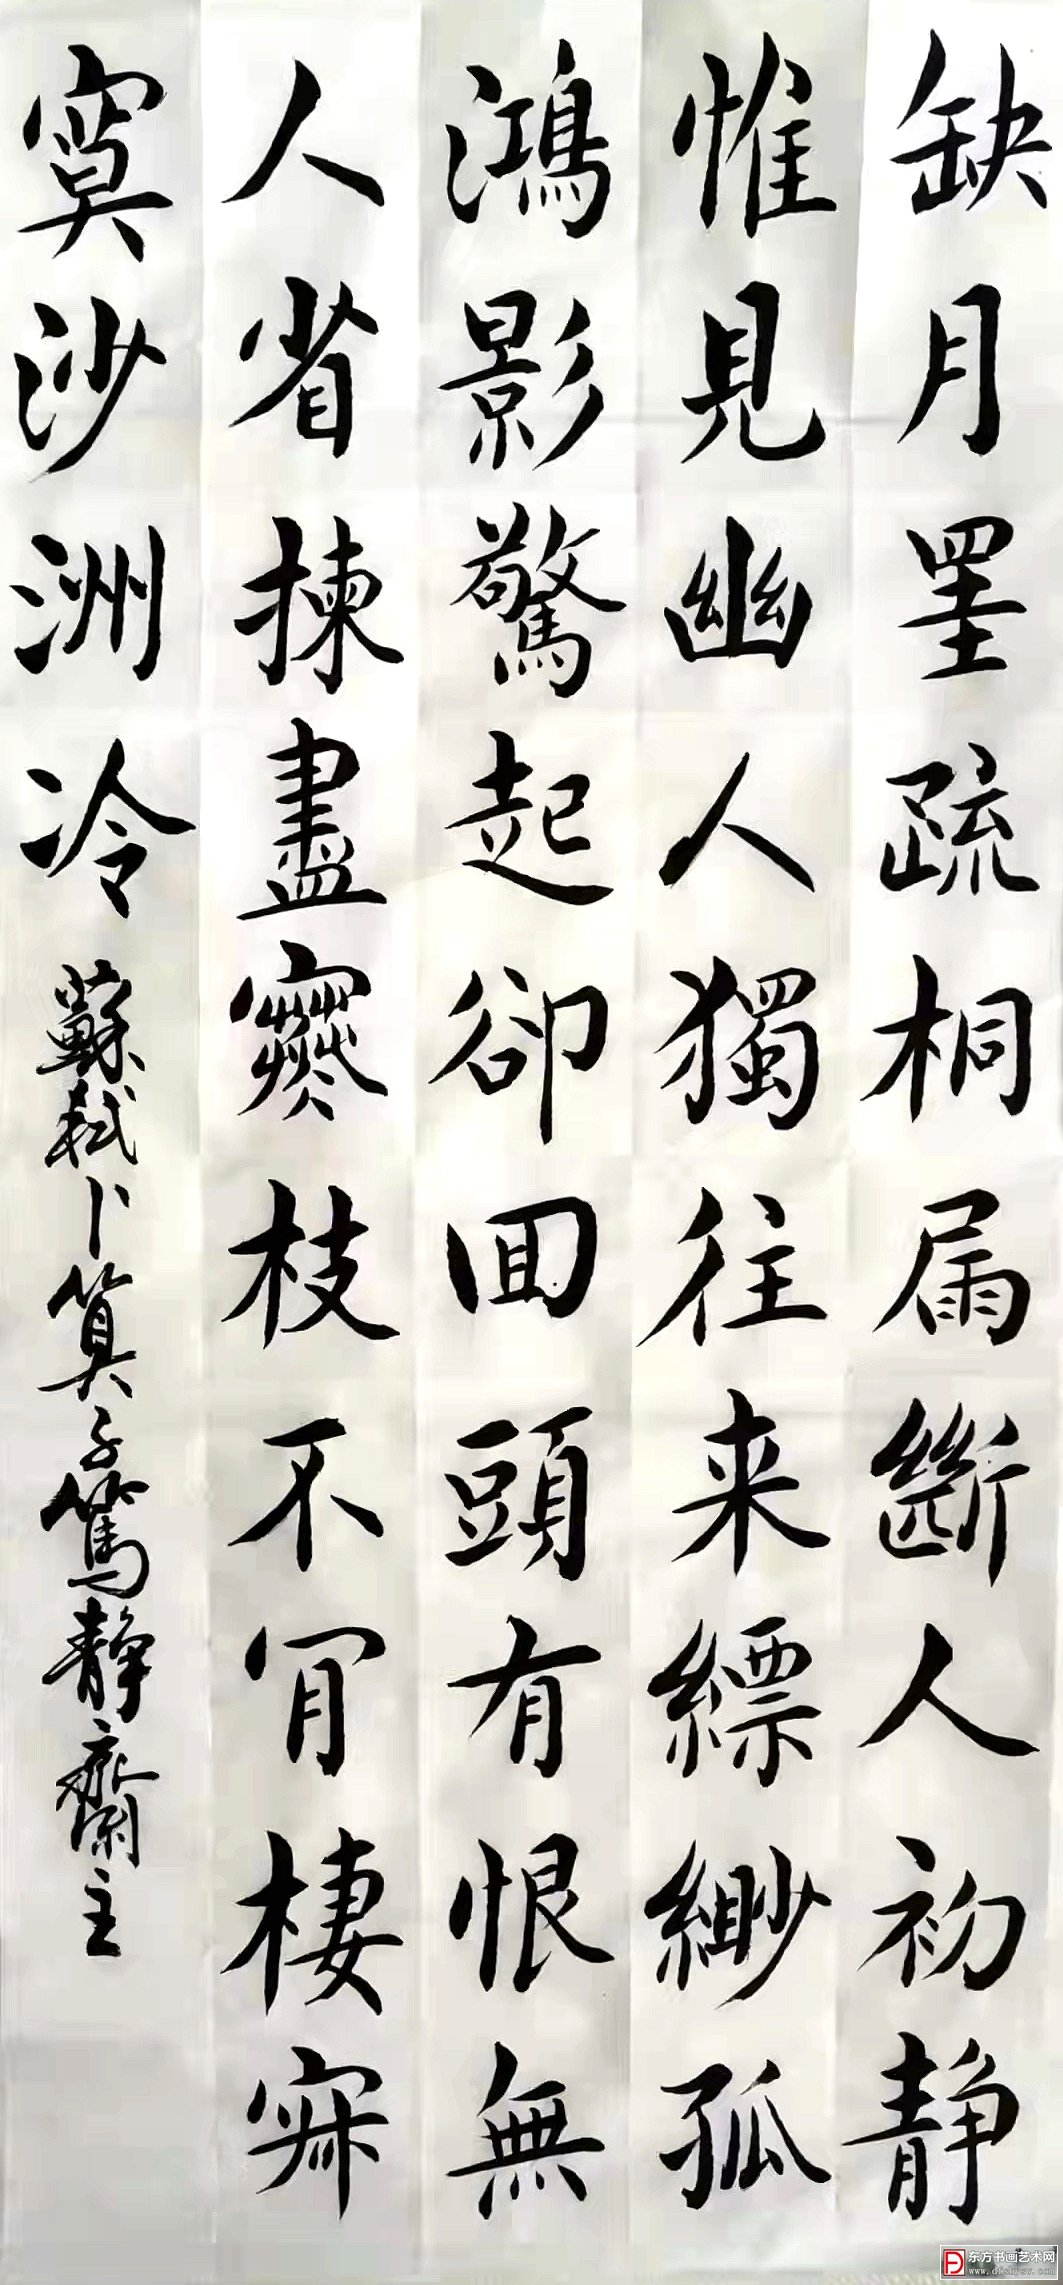 缺月罣疏桐屚斷人初静
惟見幽人獨往来縹緲孤
鴻影驚起卻囬頭有恨無
人省揀盡寒枝不肎棲寂
寞沙洲冷 蘇軾卜算子篤静齋主
东方书画艺术网